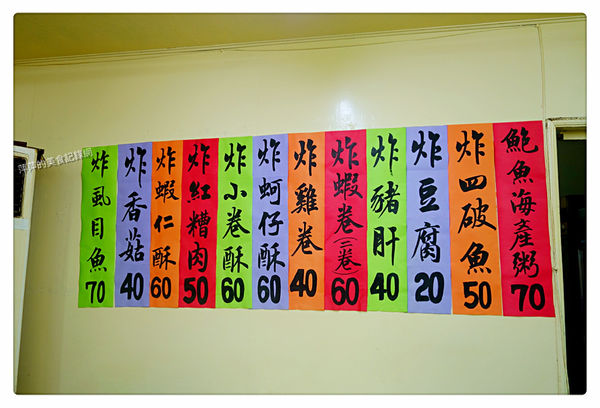 鮑魚海產粥 70
炸四破魚 50
炸豆腐 20
炸豬肝 40
炸蝦卷(三卷) 60
炸雞卷 40
炸蚵仔酥 60
炸小卷酥 60
炸紅糟肉 50
炸蝦仁酥 60
炸香菇 40
炸虱目魚 70
萍萍的美食記錄網